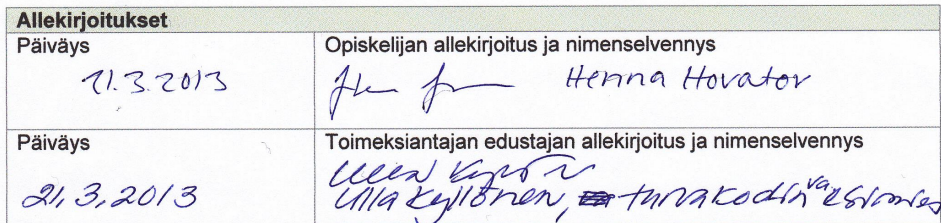 Allekirjoitukset
Päiväys
Opiskelijan allekirjoitus ja nimenselvennys
21.3.2013
Henna Hovatov
Päiväys
Toimeksiantajan edustajan allekirjoitus ja nimenselvennys
21.3.2013
Ulla Kyllönen, turvakodin va esimies